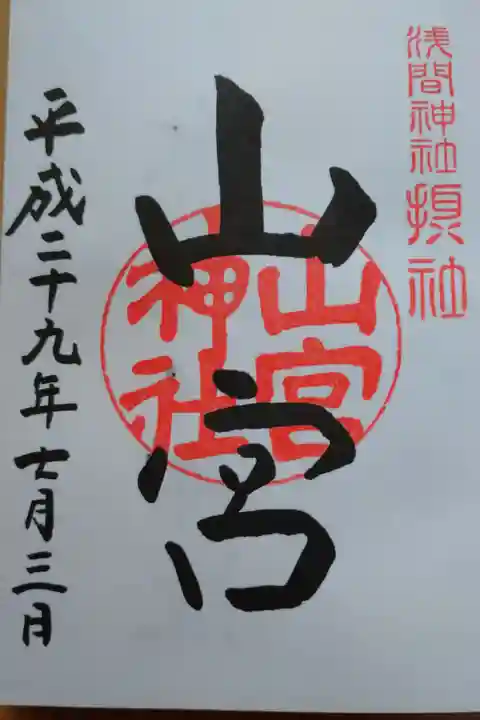 浅間神社摂社
山宮
山宮
神社
平成二十九年七月三日